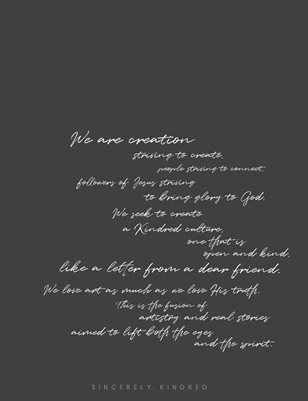 We are creation
striving to create,
people striving to connect,
followers of Jesus striving
to bring glory to God.
We seek to create
a Kindred culture,
one that is
open and kind,
like a letter from a dear friend.
We love art as much as we love His truth.
This is the fusion of
artistry and real stories
aimed to lift both the eyes
and the spirit.
SINCERELY, KINDRED